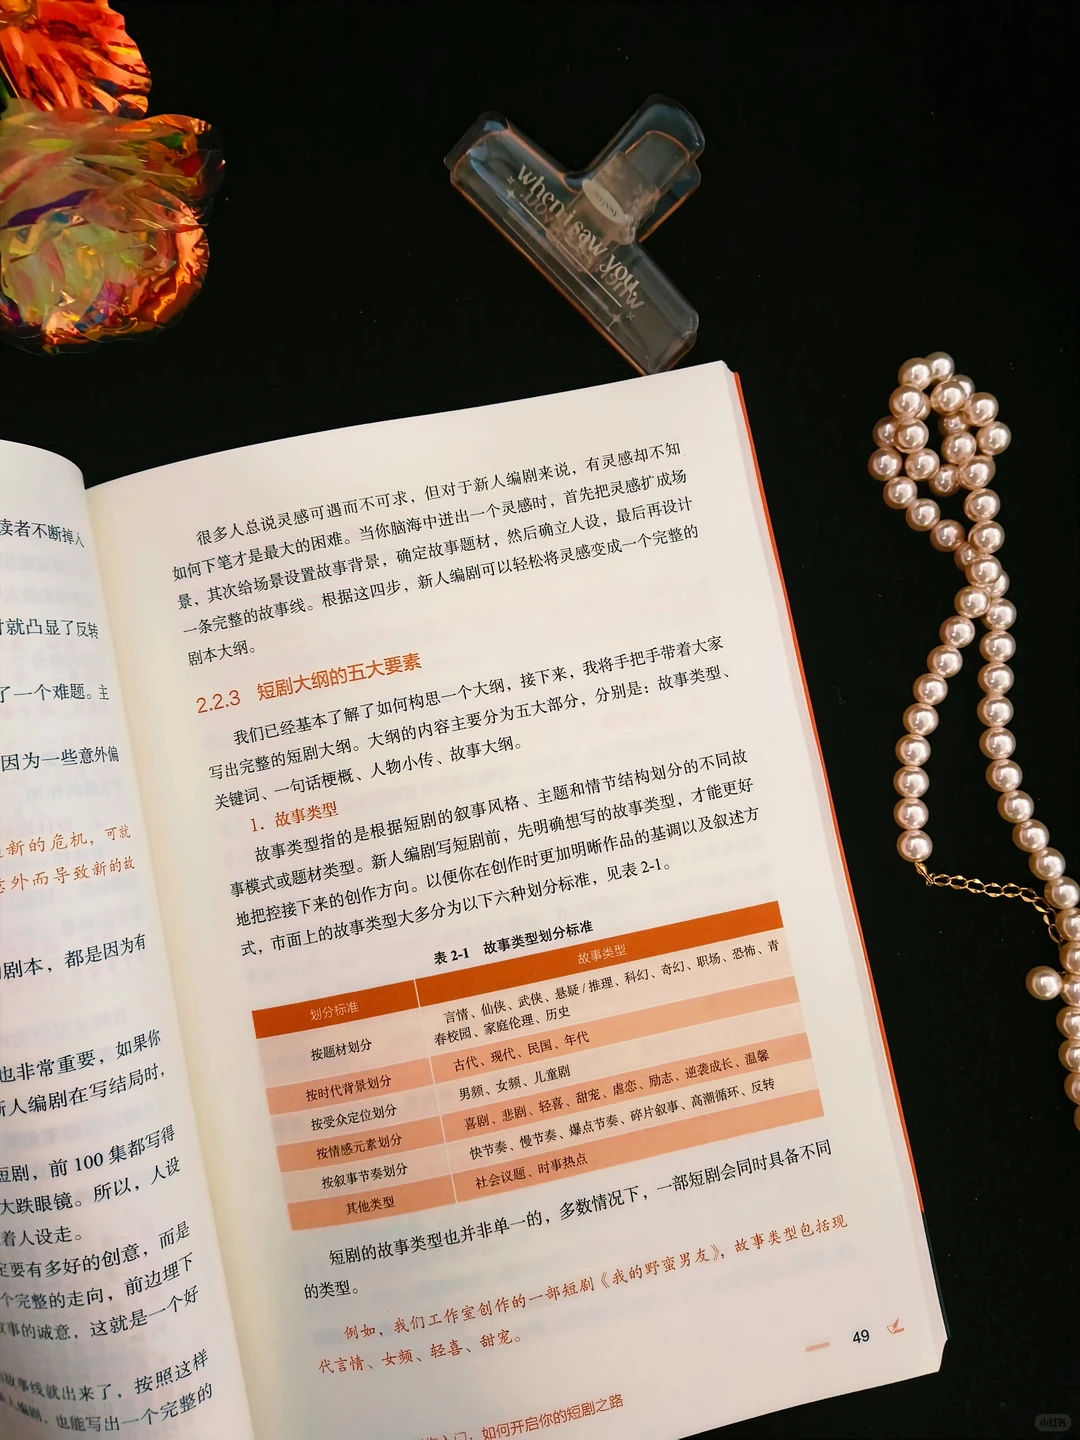 when i saw you
读者不断掉入
时就凸显了反转
了一个难题。主
因为一些意外偏
新的危机，可就
意外而导致新的故
剧本，都是因为有
也非常重要，如果你
新人编剧在写结局时，
短剧，前 100 集都写得
大跌眼镜。所以，人设
着人设走。
定要有多好的创意，而是
个完整的走向，前边埋下
故事的诚意，这就是一个好
故事线就出来了，按照这样
也能写出一个完整的
很多人总说灵感可遇而不可求，但对于新人编剧来说，有灵感却不知
如何下笔才是最大的困难。当你脑海中迸出一个灵感时，首先把灵感扩成场
景，其次给场景设置故事背景，确定故事题材，然后确立人设，最后再设计
一条完整的故事线。根据这四步，新人编剧可以轻松将灵感变成一个完整的
剧本大纲。
2.2.3 短剧大纲的五大要素
我们已经基本了解了如何构思一个大纲，接下来，我将手把手带着大家
写出完整的短剧大纲。大纲的内容主要分为五大部分，分别是：故事类型、
关键词、一句话梗概、人物小传、故事大纲。
1. 故事类型
故事类型指的是根据短剧的叙事风格、主题和情节结构划分的不同故
事模式或题材类型。新人编剧写短剧前，先明确想写的故事类型，才能更好
地把控接下来的创作方向。以便你在创作时更加明晰作品的基调以及叙述方
式，市面上的故事类型大多分为以下六种划分标准，见表 2-1。
表 2-1 故事类型划分标准
划分标准 故事类型
按题材划分 言情、仙侠、武侠、悬疑/推理、科幻、奇幻、职场、恐怖、青
春校园、家庭伦理、历史
按时代背景划分 古代、现代、民国、年代
按受众定位划分 男频、女频、儿童剧
按情感元素划分 喜剧、悲剧、轻喜、甜宠、虐恋、励志、逆袭成长、温馨
按叙事节奏划分 快节奏、慢节奏、爆点节奏、碎片叙事、高潮循环、反转
其他类型 社会议题、时事热点
短剧的故事类型也并非单一的，多数情况下，一部短剧会同时具备不同
的类型。
例如，我们工作室创作的一部短剧《我的野蛮男友》，故事类型包括现
代言情、女频、轻喜、甜宠。
49
入门，如何开启你的短剧之路
小红书